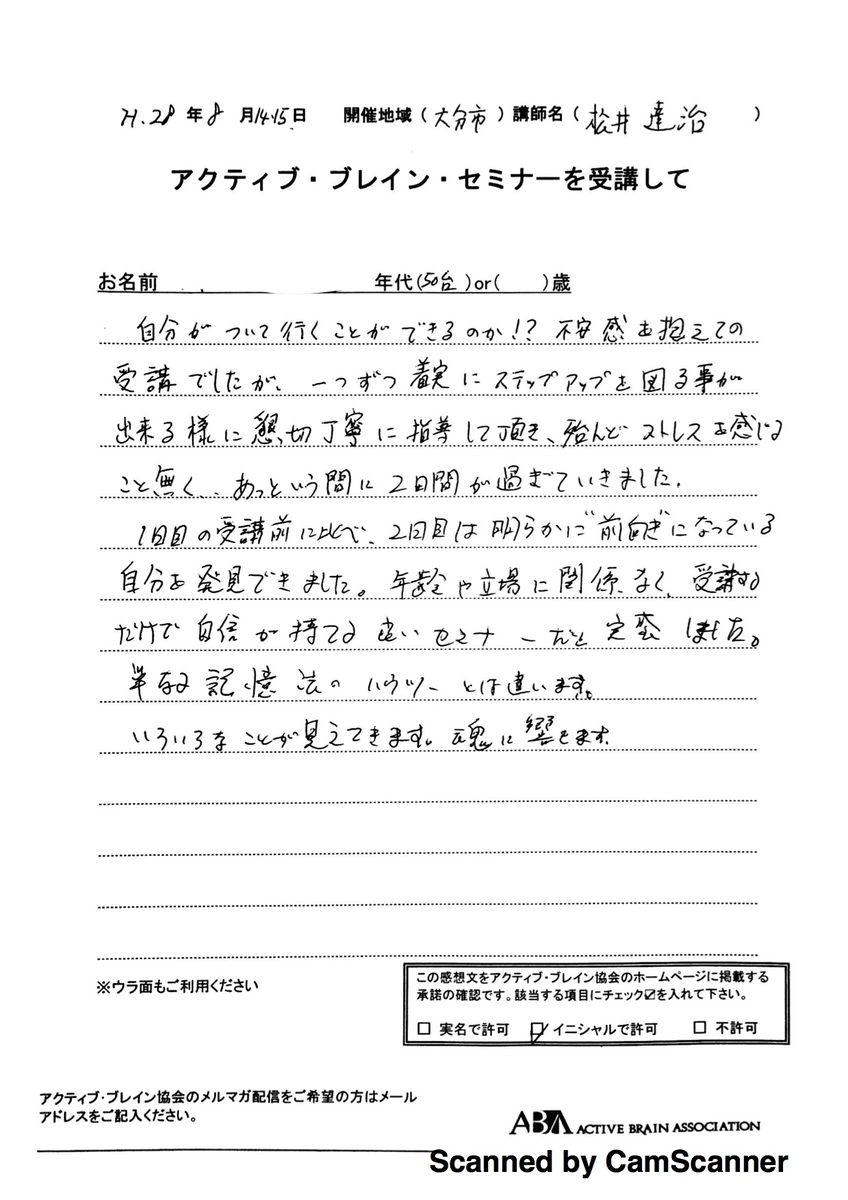 H.28年8月14.15日 開催地域（大分市）講師名（松井 達治 ）
アクティブ・ブレイン・セミナーを受講して
お名前 年代(50台)or( )歳
自分がついて行くことができるのか!? 不安感を抱えての
受講でしたが、一つずつ着実にステップアップを図る事が
出来る様に懇切丁寧に指導して頂き、殆んどストレスを感じる
こと無く、あっという間に2日間が過ぎていきました。
1日目の受講前に比べ、2日目は明らかに"前向き"になっている
自分を発見できました。年齢や立場に関係なく、受講する
だけで自信が持てる良いセミナーだと実感しました。
単なる記憶法のハウツーとは違います。
いろいろなことが見えてきます。魂に響きます。
※ウラ面もご利用ください
この感想文をアクティブ・ブレイン協会のホームページに掲載する
承諾の確認です。該当する項目にチェック☑を入れて下さい。
☐ 実名で許可 ☑ イニシャルで許可 ☐ 不許可
アクティブ・ブレイン協会のメルマガ配信をご希望の方はメール
アドレスをご記入ください。
ABA ACTIVE BRAIN ASSOCIATION
Scanned by CamScanner